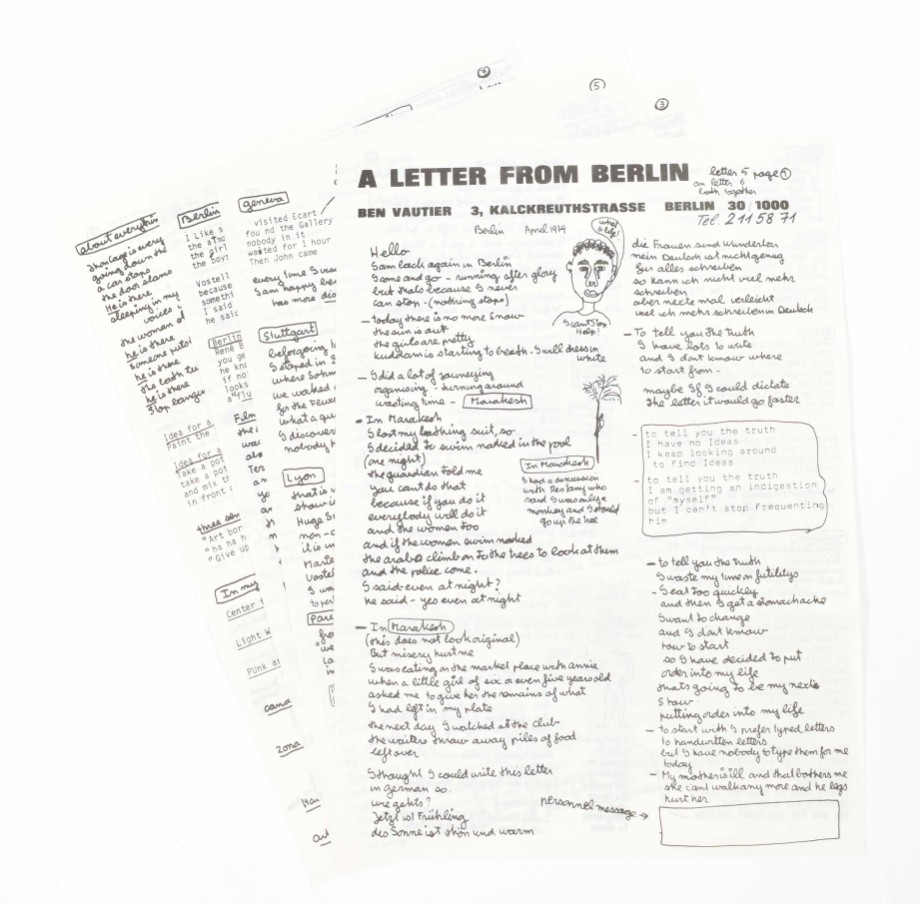 A LETTER FROM BERLIN
letter 5 page 1
on letter 6
both together
BEN VAUTIER 3, KALCKREUTHSTRASSE BERLIN 30/1000
Tel. 211 58 71
Berlin April 1979
Hello
I am back again in Berlin
I come and go - running after glory
but thats because I never
can stop - (nothing stops)
- today there is no more snow
the sun is out
the girls are pretty
kuddam is starting to breath - I will dress in
white
- I did a lot of journeying
organising - turning around
wasting time - Marakesh
what
a life!
I cant stop
Help!
- In Marakesh
I lost my bathing suit, so
I decided to swim naked in the pool
(one night)
the guardian told me
you cant do that
because if you do it
everybody will do it
and the women too
and if the women swim naked
the arabs climb on to the trees to look at them
and the police come.
I said even at night?
he said - yes even at night
In Marakesh
I had a discussion
with Restany who
said I was only a
monkey and I should
go up the tree
- In Marakesh
(this does not look original)
But misery hurt me
I was eating on the market place with annie
when a little girl of six or even five years old
asked me to give her the remains of what
I had left in my plate
the next day I watched at the club
the waiters throw away piles of food
left over
I thought I could write this letter
in german so.
wie gehts?
Jetzt ist Frühling
des Sonne ist shön und warm
die Frauen sind wunderbar
mein Deutsch ist nicht genug
für alles schreiben
so kann ich nicht viel mehr
schreiben
aber nexte mal verleicht
viel ich mehr schreiben in Deutsch
- To tell you the truth
I have lots to write
and I dont know where
to start from -
maybe If I could dictate
the letter it would go faster
- to tell you the truth
I have no Ideas
I keep looking around
to find Ideas
- to tell you the truth
I am getting an indigestion
of "myself"
but I can't stop frequenting
him
- to tell you the truth
I waste my time on futilitys
- I eat too quickey
and then I get a stomachache
I want to change
and I dont know
how to start
so I have decided to put
order into my life
thats going to be my nexte
show
putting order into my life
- to start with I prefer typed letters
to handwritten letters
but I have nobody to type them for me
today
- My mother is ill and that bothers me
she cant walk any more and he legs
hurt her
personnel message →
3
5
7
geneva
visited Ecart
fou nd the Gallery
nobody in it
waited for 1 hour
Then John came
every time I
I am happy
has more
Stuttgart
I stoped in
where Sohm
we waked
for the
what a
I discover
nobody
Lyon
that is
show
Huge
men -
it is
Berlin
I Like
the
the girl
the boy
Vostell
because
someth
I said
he said
Berlin
René B
you
he
if no
looks
a "flu
Film
about everything
John cage is every
going down the
a car stops
the door slams
He is there
sleeping in my
voices
the women
he is there
someone
he is there
the bath
he is there
Idea for a
Paint the
Idea for a
Take a pot
take a pot
and mix
in front
three
"Art bor
"ha ha h
"Give up
In my
Center
Light W
Punk ar